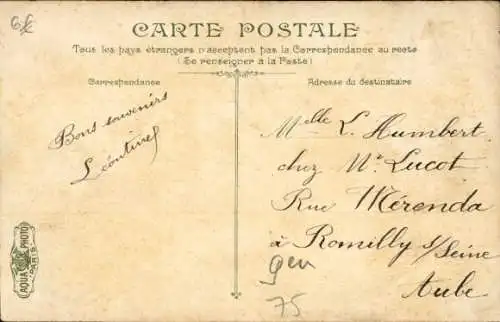 6€
CARTE POSTALE
Tous les pays étrangers n'acceptent pas la Correspondance au recto
(Se renseigner à la Poste)
Correspondance
Adresse du destinataire
Bons souvenirs
Léontine
Melle L. Humbert
chez Mr Lucot
Rue Mérenda
à Romilly s/Seine
Aube
gen
75
AQUA PHOTO
PARIS